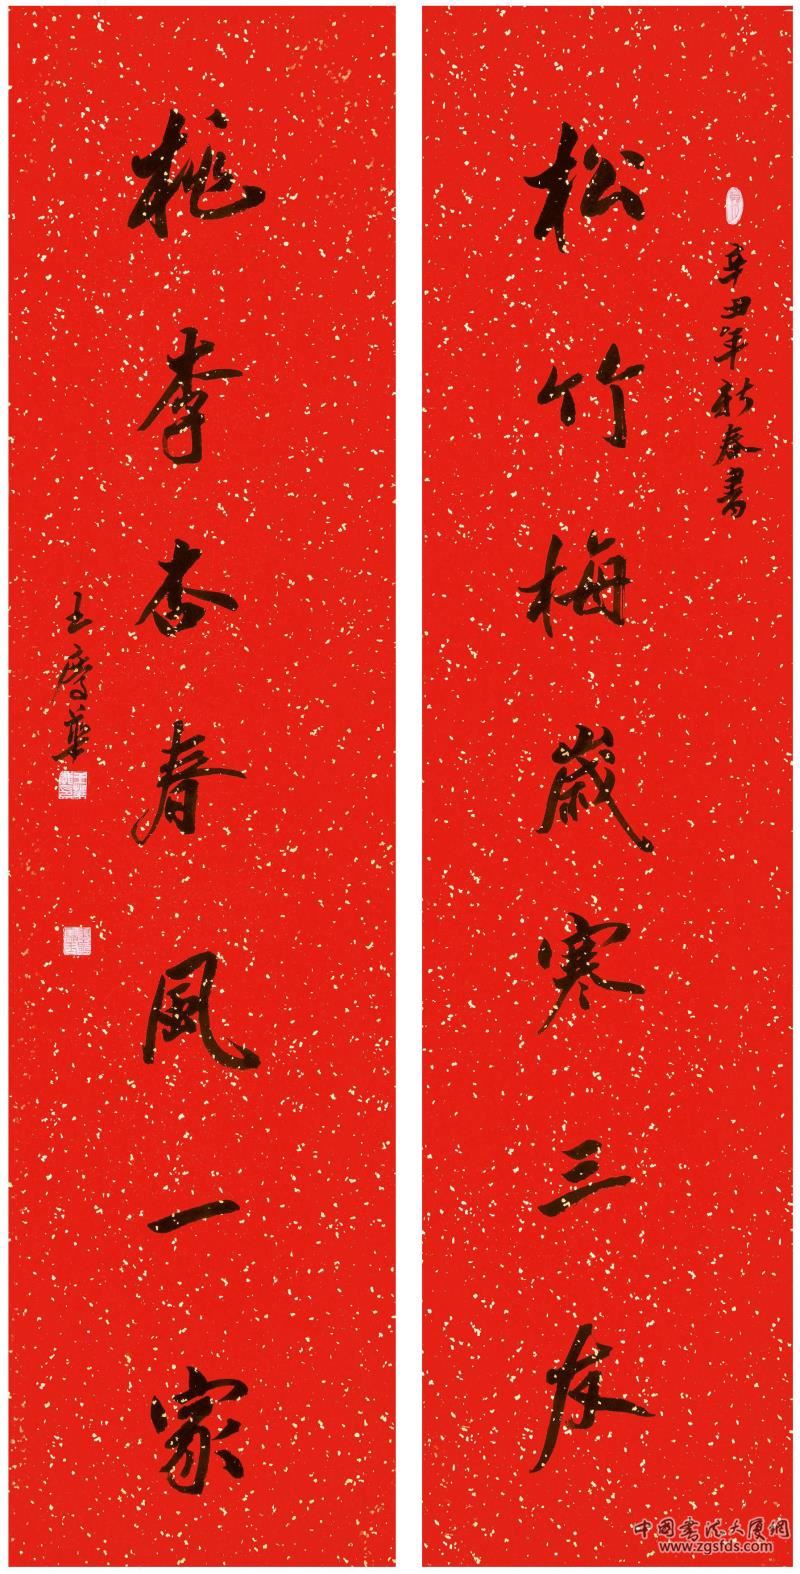 辛丑年新春書
松竹梅歲寒三友
桃李杏春風一家
中国書法大厦網
www.zgsfds.com